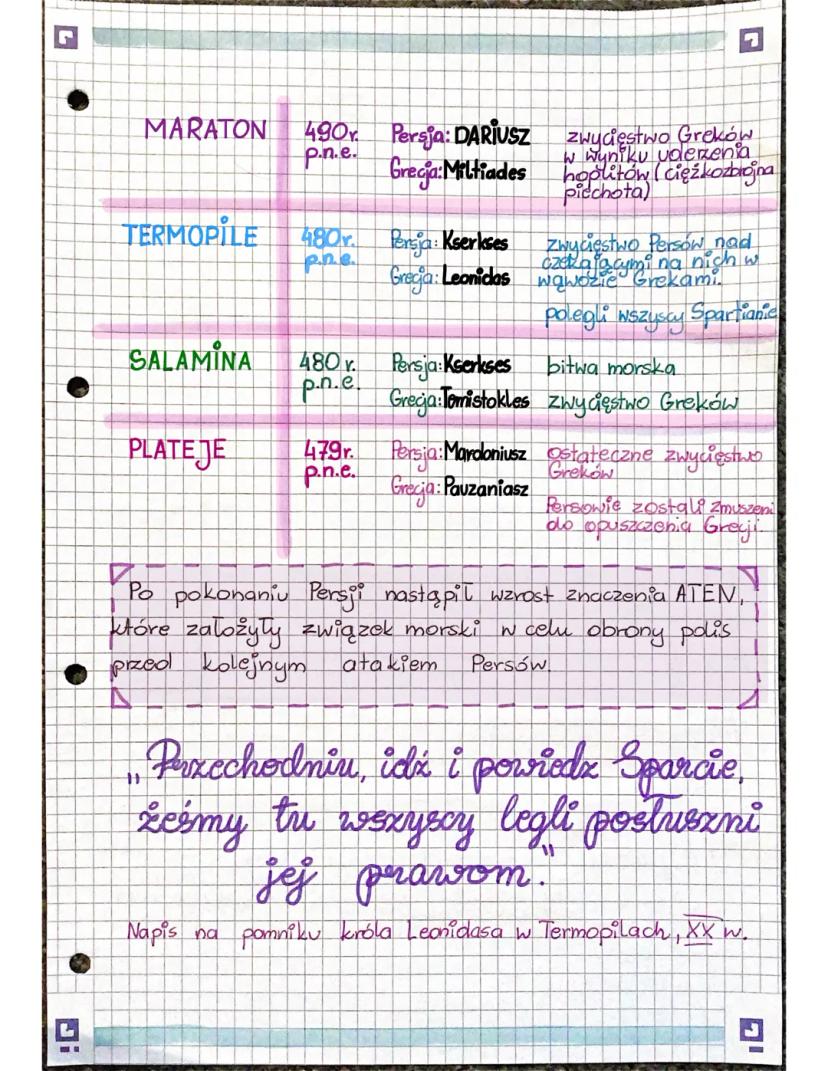 MARATON
490r.
p.n.e.
Persja: DARIUSZ
Grecja: Miltiades
zwycięstwo Greków
w wyniku uderzenia
hoplitów (ciężkozbrojna
piechota)
TERMOPILE
480r.
p.n.e.
Persja: Kserkses
Grecja: Leonidas
zwycięstwo Persów nad
czekającymi na nich w
wąwozie Grekami.
polegli wszyscy Spartianie
SALAMINA
480 r.
p.n.e.
Persja: Kserkses
Grecja: Temistokles
bitwa morska
zwycięstwo Greków
PLATEJE
479r.
p.n.e.
Persja: Mardoniusz
Grecja: Pauzaniasz
ostateczne zwycięstwo
Greków
Persowie zostali zmuszeni
do opuszczenia Grecji.
Po pokonaniu Persji nastąpił wzrost znaczenia ATEN,
które założyły związek morski w celu obrony polis
przed kolejnym atakiem Persów.
„Przechodniu, idź i powiedz Sparcie,
żeśmy tu wszyscy legli posłuszni
jej prawom."
Napis na pomniku króla Leonidasa w Termopilach, XX w.